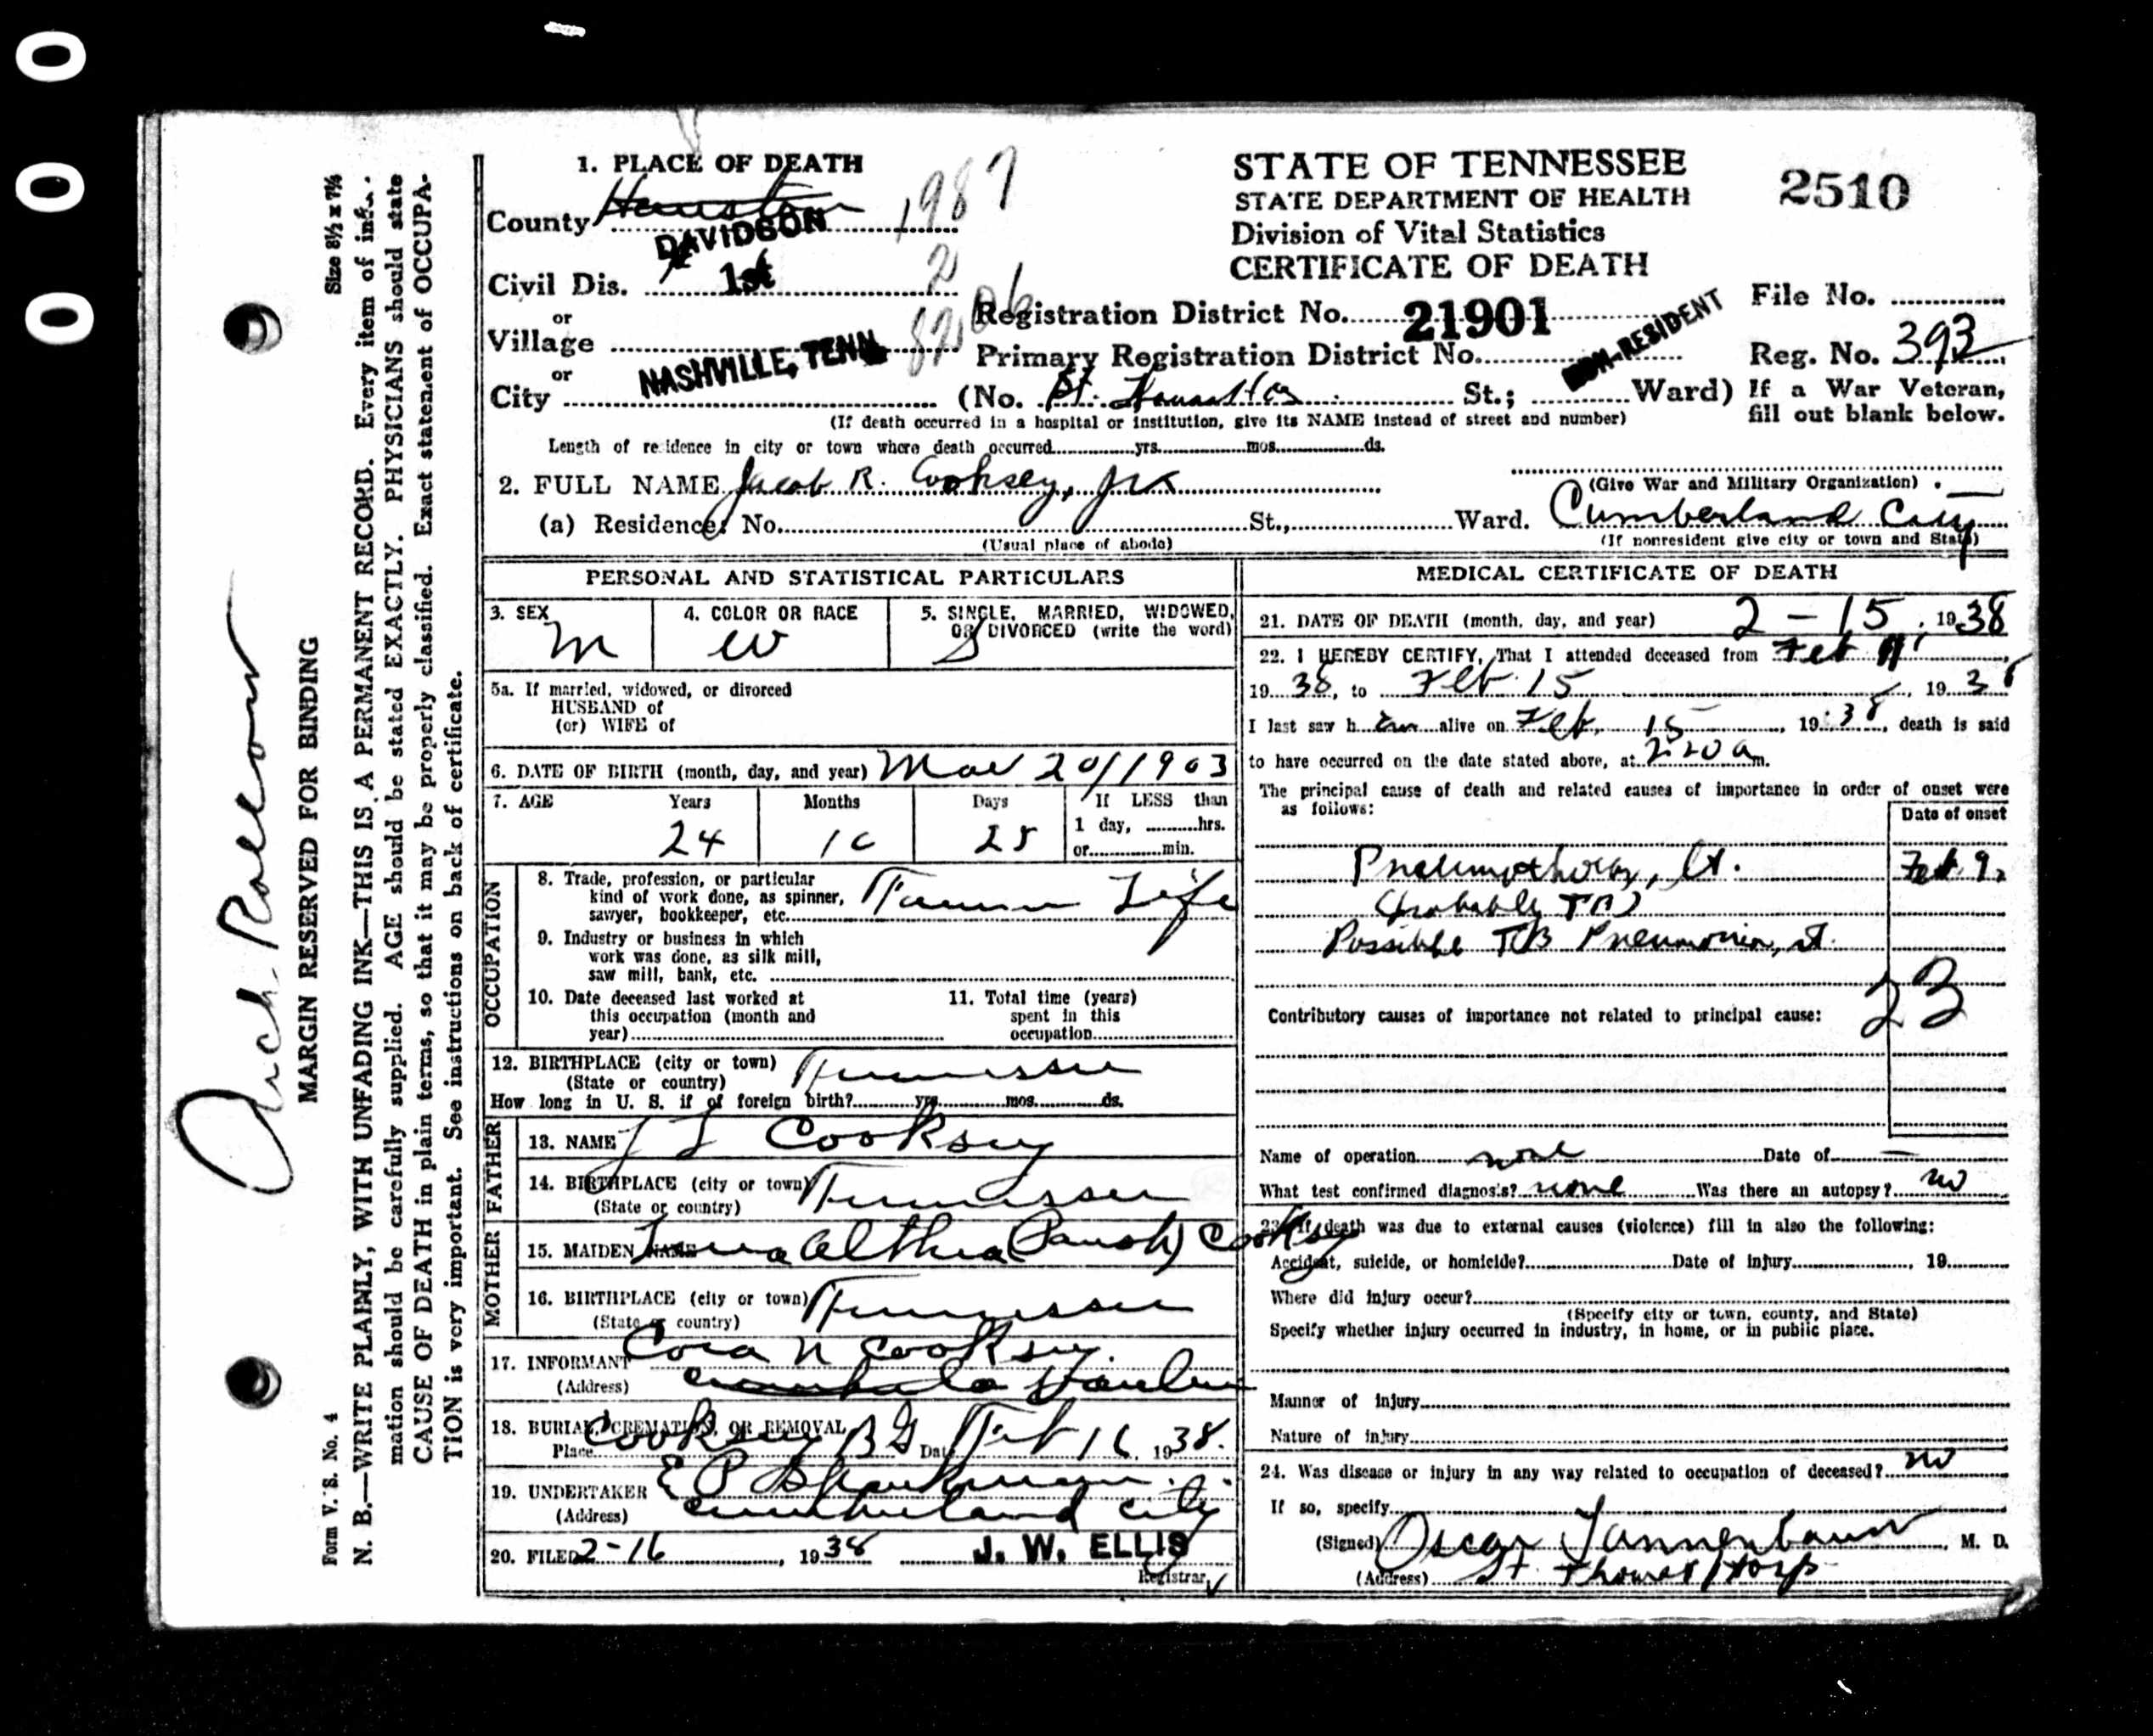 000
1. PLACE OF DEATH
County Houston DAVIDSON 1987
Civil Dis. 1st 2
or
Village
or
City NASHVILLE, TENN
STATE OF TENNESSEE
STATE DEPARTMENT OF HEALTH
Division of Vital Statistics
CERTIFICATE OF DEATH
2510
Registration District No. 21901
File No.
Primary Registration District No. NON-RESIDENT
Reg. No. 393
(No. St. St.; Ward)
If a War Veteran, fill out blank below.
(If death occurred in a hospital or institution, give its NAME instead of street and number)
Length of residence in city or town where death occurred yrs. mos. ds.
2. FULL NAME Jacob R. Cooksey, Jr
(Give War and Military Organization)
(a) Residence: No. St., Ward. Cumberland City
(Usual place of abode)
(If nonresident give city or town and State)
PERSONAL AND STATISTICAL PARTICULARS
3. SEX M
4. COLOR OR RACE W
5. SINGLE, MARRIED, WIDOWED, OR DIVORCED (write the word) S
5a. If married, widowed, or divorced
HUSBAND of
(or) WIFE of
6. DATE OF BIRTH (month, day, and year) Mar 20/1903
7. AGE Years Months Days If LESS than
24 10 25 1 day, hrs.
or min.
OCCUPATION
8. Trade, profession, or particular
kind of work done, as spinner,
sawyer, bookkeeper, etc. Life
9. Industry or business in which
work was done, as silk mill,
saw mill, bank, etc.
10. Date deceased last worked at
this occupation (month and
year)
11. Total time (years)
spent in this
occupation
12. BIRTHPLACE (city or town) Tennessee
(State or country)
How long in U. S. if of foreign birth? yrs. mos. ds.
FATHER
13. NAME J L Cooksey
14. BIRTHPLACE (city or town) Tennessee
(State or country)
MOTHER
15. MAIDEN NAME Althea (Parish) Cooksey
16. BIRTHPLACE (city or town) Tennessee
(State or country)
17. INFORMANT Cora N Cooksey
(Address)
18. BURIAL, CREMATION, OR REMOVAL
Place Cooksey B G Date Feb 16, 1938.
19. UNDERTAKER E P
(Address) Cumberland City
20. FILED 2-16, 1938 J. W. ELLIS
Registrar
MEDICAL CERTIFICATE OF DEATH
21. DATE OF DEATH (month, day, and year) 2-15, 1938
22. I HEREBY CERTIFY, That I attended deceased from Feb 11,
1938, to Feb 15, 1938
I last saw him alive on Feb. 15, 1938, death is said
to have occurred on the date stated above, at 2:20 a m.
The principal cause of death and related causes of importance in order of onset were
as follows:
Date of onset
Pneumothorax, Feb 9,
(Probably TB)
Possible TB Pneumonia,
23
Contributory causes of importance not related to principal cause:
Name of operation none Date of —
What test confirmed diagnosis? none Was there an autopsy? no
23. If death was due to external causes (violence) fill in also the following:
Accident, suicide, or homicide? Date of injury, 19
Where did injury occur?
(Specify city or town, county, and State)
Specify whether injury occurred in industry, in home, or in public place.
Manner of injury
Nature of injury
24. Was disease or injury in any way related to occupation of deceased? no
If so, specify
(Signed) Oscar Tannenbaum, M. D.
(Address) St. Thomas Hosp
Size 8½ x 7¾
MARGIN RESERVED FOR BINDING
N. B.—WRITE PLAINLY, WITH UNFADING INK—THIS IS A PERMANENT RECORD. Every item of infor-
mation should be carefully supplied. AGE should be stated EXACTLY. PHYSICIANS should state
CAUSE OF DEATH in plain terms, so that it may be properly classified. Exact statement of OCCUPA-
TION is very important. See instructions on back of certificate.
Form V. S. No. 4